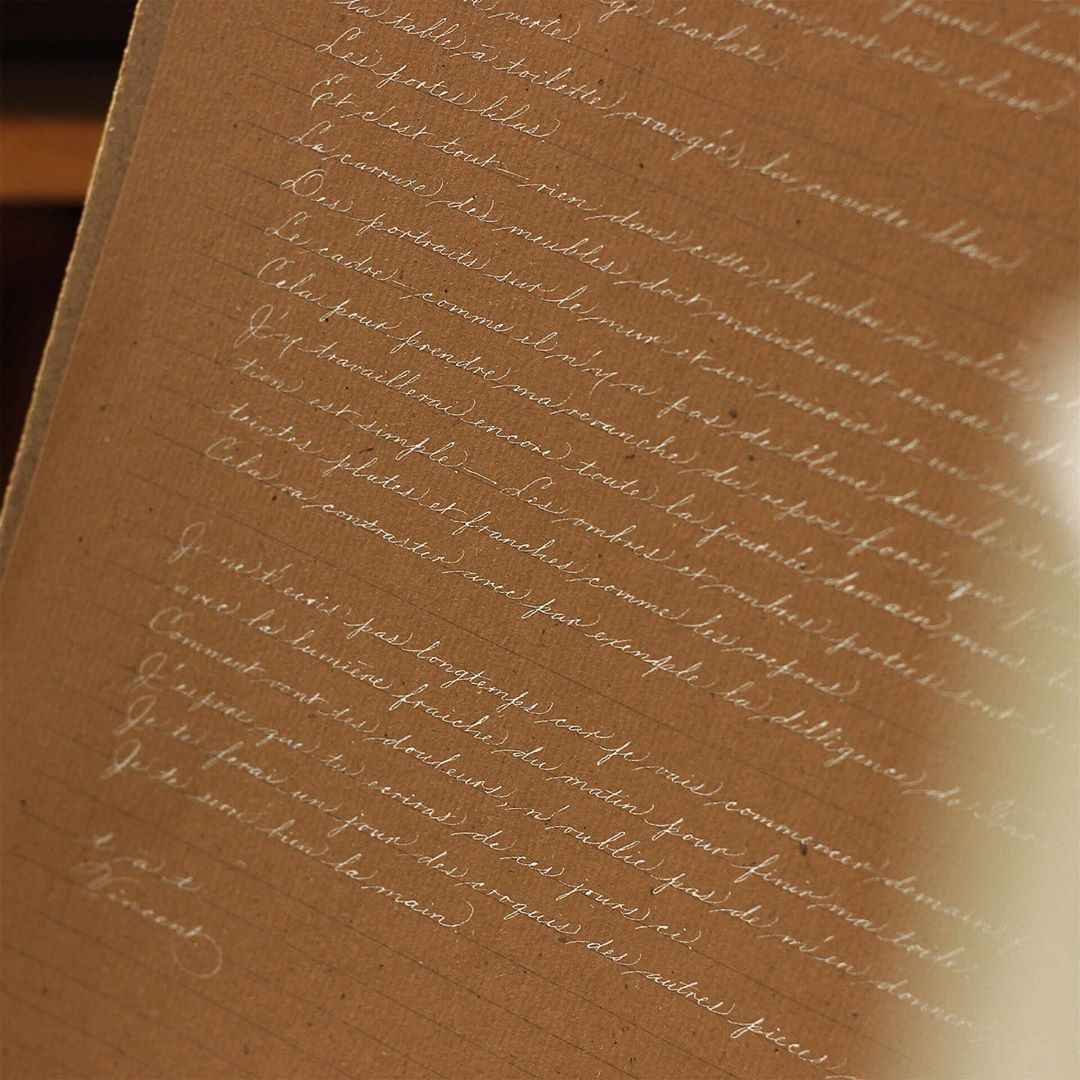 verte. écarlate
la table à toilette orangée, la cuvette bleue
Les portes lilas.
Et c'est tout – rien dans cette chambre à volets
La carrure des meubles doit maintenant encore exp
Des portraits sur le mur et un miroir et un essuie
Le cadre – comme il n'y a pas de blanc dans le ta
Cela pour prendre ma revanche du repos forcé que j'
J'y travaillerai encore toute la journée demain, mais
tion est simple. – Les ombres et ombres portées sont
teintes plates et franches comme les crepons
Cela va contraster avec par exemple la dilligence de
Je ne t'ecris pas longtemps car je vais commencer demain
avec la lumière fraiche du matin pour finir ma toile.
Comment vont tes douleurs, n'oublie pas de m'en donner
J'espère que tu ecriras de ces jours ci.
Je te ferai un jour des croquis des autres pieces
Je te serre bien la main
t. à t.
Vincent